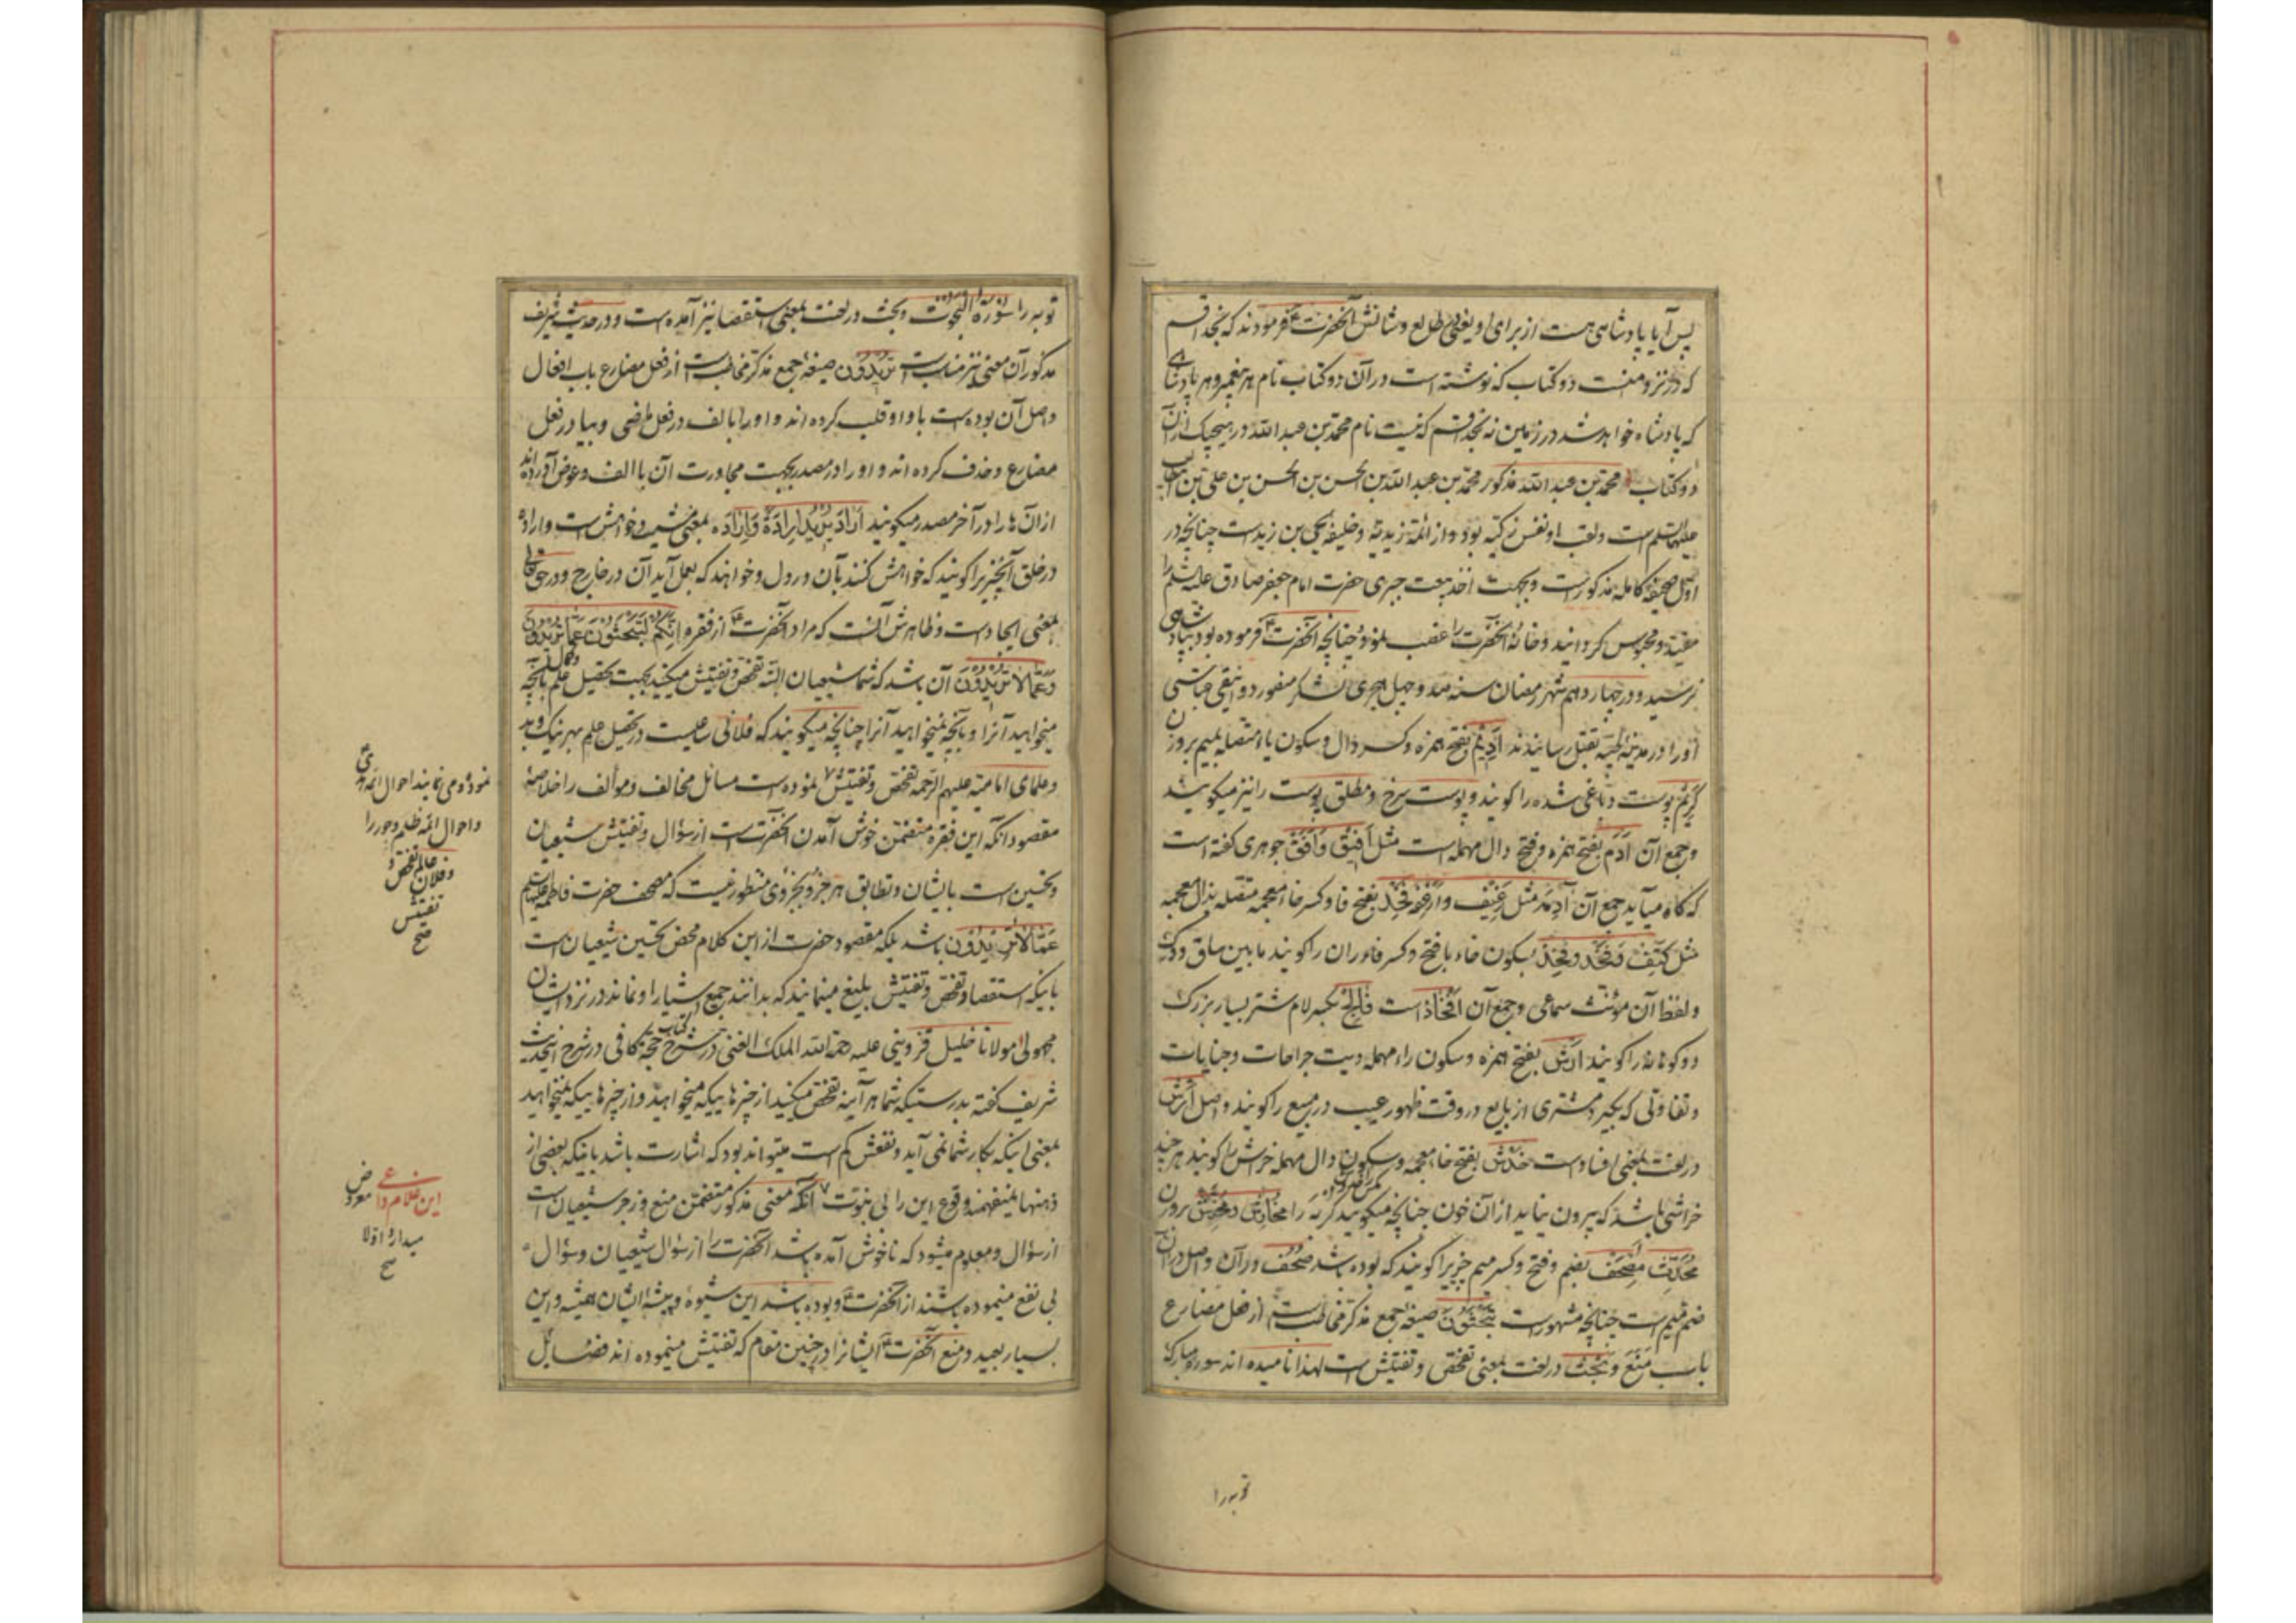 پس آیا پادشاهی هست از برای او یعنی طالع و شانش آنحضرت ع فرمودند که بخدا قسم
که در نزد منست دو کتاب که نوشته است در آن دو کتاب نام هر پیغمبر و هر پادشاهی
که پادشاه خواهد شد در زمین نه بخدا قسم که نیست نام محمد بن عبد الله در هیچیک از آن
دو کتاب محمد بن عبد الله مذکور محمد بن عبد الله بن الحسن بن الحسن بن علی بن ابیطالب
علیهم السلم است و لقب او نفس زکیه بود و از ائمه زیدیه و خلیفه یحیی بن زید است چنانچه در
اول صحیفه کامله مذکور است و بجهت اخذ بیعت جبری حضرت امام جعفر صادق علیه السلم را
مقید و محبوس گردانید و خانه آنحضرت را غصب نمود و چنانچه آنحضرت ع فرموده بود بپادشاهی
نرسید و در چهاردهم شهر رمضان سنه صد و چهل هجری لشکر منصور دوانیقی عباسی
او را در مدینه طیبه بقتل رسانیدند اَدیم بفتح همزه و کسر دال و سکون یا متصله بمیم بروزن
کَریم پوست دباغی شده را گویند و پوست سرخ و مطلق پوست را نیز میگویند
و جمع آن اَدَم بفتح همزه و فتح دال مهمله است مثل اَفیق و اَفَق جوهری گفته است
که گاه میآید جمع آن آدِمَه مثل رَغیف و اَرغِفَه فَخِذ بفتح فا و کسر خاء معجمه متصله بذال معجمه
مثل کَتِف و فَخذ و فِخذ بسکون خاء با فتح و کسر فا و ران را گویند ما بین ساق و ورک
و لفظ آن مؤنث سماعی و جمع آن اَفخاذ است فالِج بکسر لام شتر بسیار بزرگ
دو کوهانه را گویند اَرش بفتح همزه و سکون راء مهمله دیت جراحات و جنایات
و تفاوتی که بگیرد مشتری از بایع در وقت ظهور عیب در مبیع را گویند و اصل اَرش
در لغت بمعنی افساد است خَدش بفتح خاء معجمه و سکون دال مهمله خراش را گویند هر چند
خراشی باشد که بیرون نیاید از آن خون چنانچه میگویند گربه را مخادش و مخدش بروزن
محدّث مصحف بضم و فتح و کسر میم چیزیرا گویند که بوده باشد صُحُف در آن و اصل در آن
ضم میم است چنانچه مشهور است تبحثون صیغه جمع مذکر مخاطب است از فعل مضارع
باب مَنَعَ و بحث در لغت بمعنی تفحص و تفتیش است لهذا نامیده اند سوره مبارکه
توبه را
توبه را سورة البحوث و بحث در لغت بمعنی استقصا نیز آمده است و در حدیث شریف
مذکور آن معنی نیز مناسبست تریدون صیغه جمع مذکر مخاطب است از فعل مضارع باب افعال
و اصل آن بوده است با واو قلب کرده اند واو را بالف در فعل ماضی و بیا در فعل
مضارع و حذف کرده اند واو را در مصدر بجهت مجاورت آن با الف و عوض آورده اند
از آن ها را در آخر مصدر میگویند اَرادَ یُریدُ اِرادَةً و اراده بمعنی مشیت و خواهش است و اراده
در خلق آنچیز را گویند که خواهش کنند بآن و رول و خواهند که بعمل آید آن در خارج و در حقتعالی
بمعنی ایجاد است و ظاهرش آنست که مراد آنحضرت ع از فقره اِنّکم لتبحثون عمّا تریدون
و عمّا لا تریدون آن باشد که شما شیعیان البته تفحص و تفتیش میکنید بجهت تحصیل علم بآنچه
میخواهید آنرا و بآنچه نمیخواهید آنرا چنانچه میگویند که فلانی ساعیست در تحصیل علم بهر نیک و بد
و علمای امامیه علیهم الرحمه تفحص و تفتیش نموده است مسائل مخالف و مؤالف را خلاصه
مقصود آنکه این فقره متضمن خوش آمدن آنحضرتست از سؤال و تفتیش شیعیان
و تحسین است بایشان و تطابق هر جزو بجزوی منظور نیست که مصحف حضرت فاطمه علیها السلم
عمّا لا تریدون باشد بلکه مقصود حضرت از این کلام محض تحسین شیعیان است
باینکه استقصا و تفحص و تفتیش بلیغ مینمایند که بدانند جمیع اشیا را و نماند در نزد ایشان
مجهولی مولانا خلیل قزوینی علیه رحمة الله الملک الغنی در شرح کتاب حجة کافی در شرح اینحدیث
شریف گفته بدرستیکه شما هر آینه تفحص میکنید از چیزهاییکه میخواهید و از چیزهاییکه نمیخواهید
بمعنی اینکه بکار شما نمی آید و نفعش کم است میتواند بود که اشارت باشد باینکه بعضی از
ذهنها نمیفهمند وقوع این را بی نبوت آنکه معنی مذکور متضمن منع و زجر شیعیان است
از سؤال و معلوم میشود که ناخوش آمده باشد آنحضرت را از سؤال شیعیان و سؤال
بی نفع مینموده باشند از آنحضرت ع و بوده باشد این شیوه و پیشه ایشان همیشه و این
بسیار بعید و منع آنحضرت ع ایشانرا در چنین مقام که تفتیش مینموده اند فضایل
نمود و می نمایند احوال ائمه هدی
و احوال ائمه ظلم و جور را
و فلان عالم تفحص و
تفتیش
صح
این غلام داعی معروض
میدارد اولا
صح